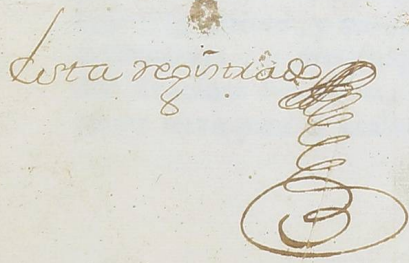 esta registrado